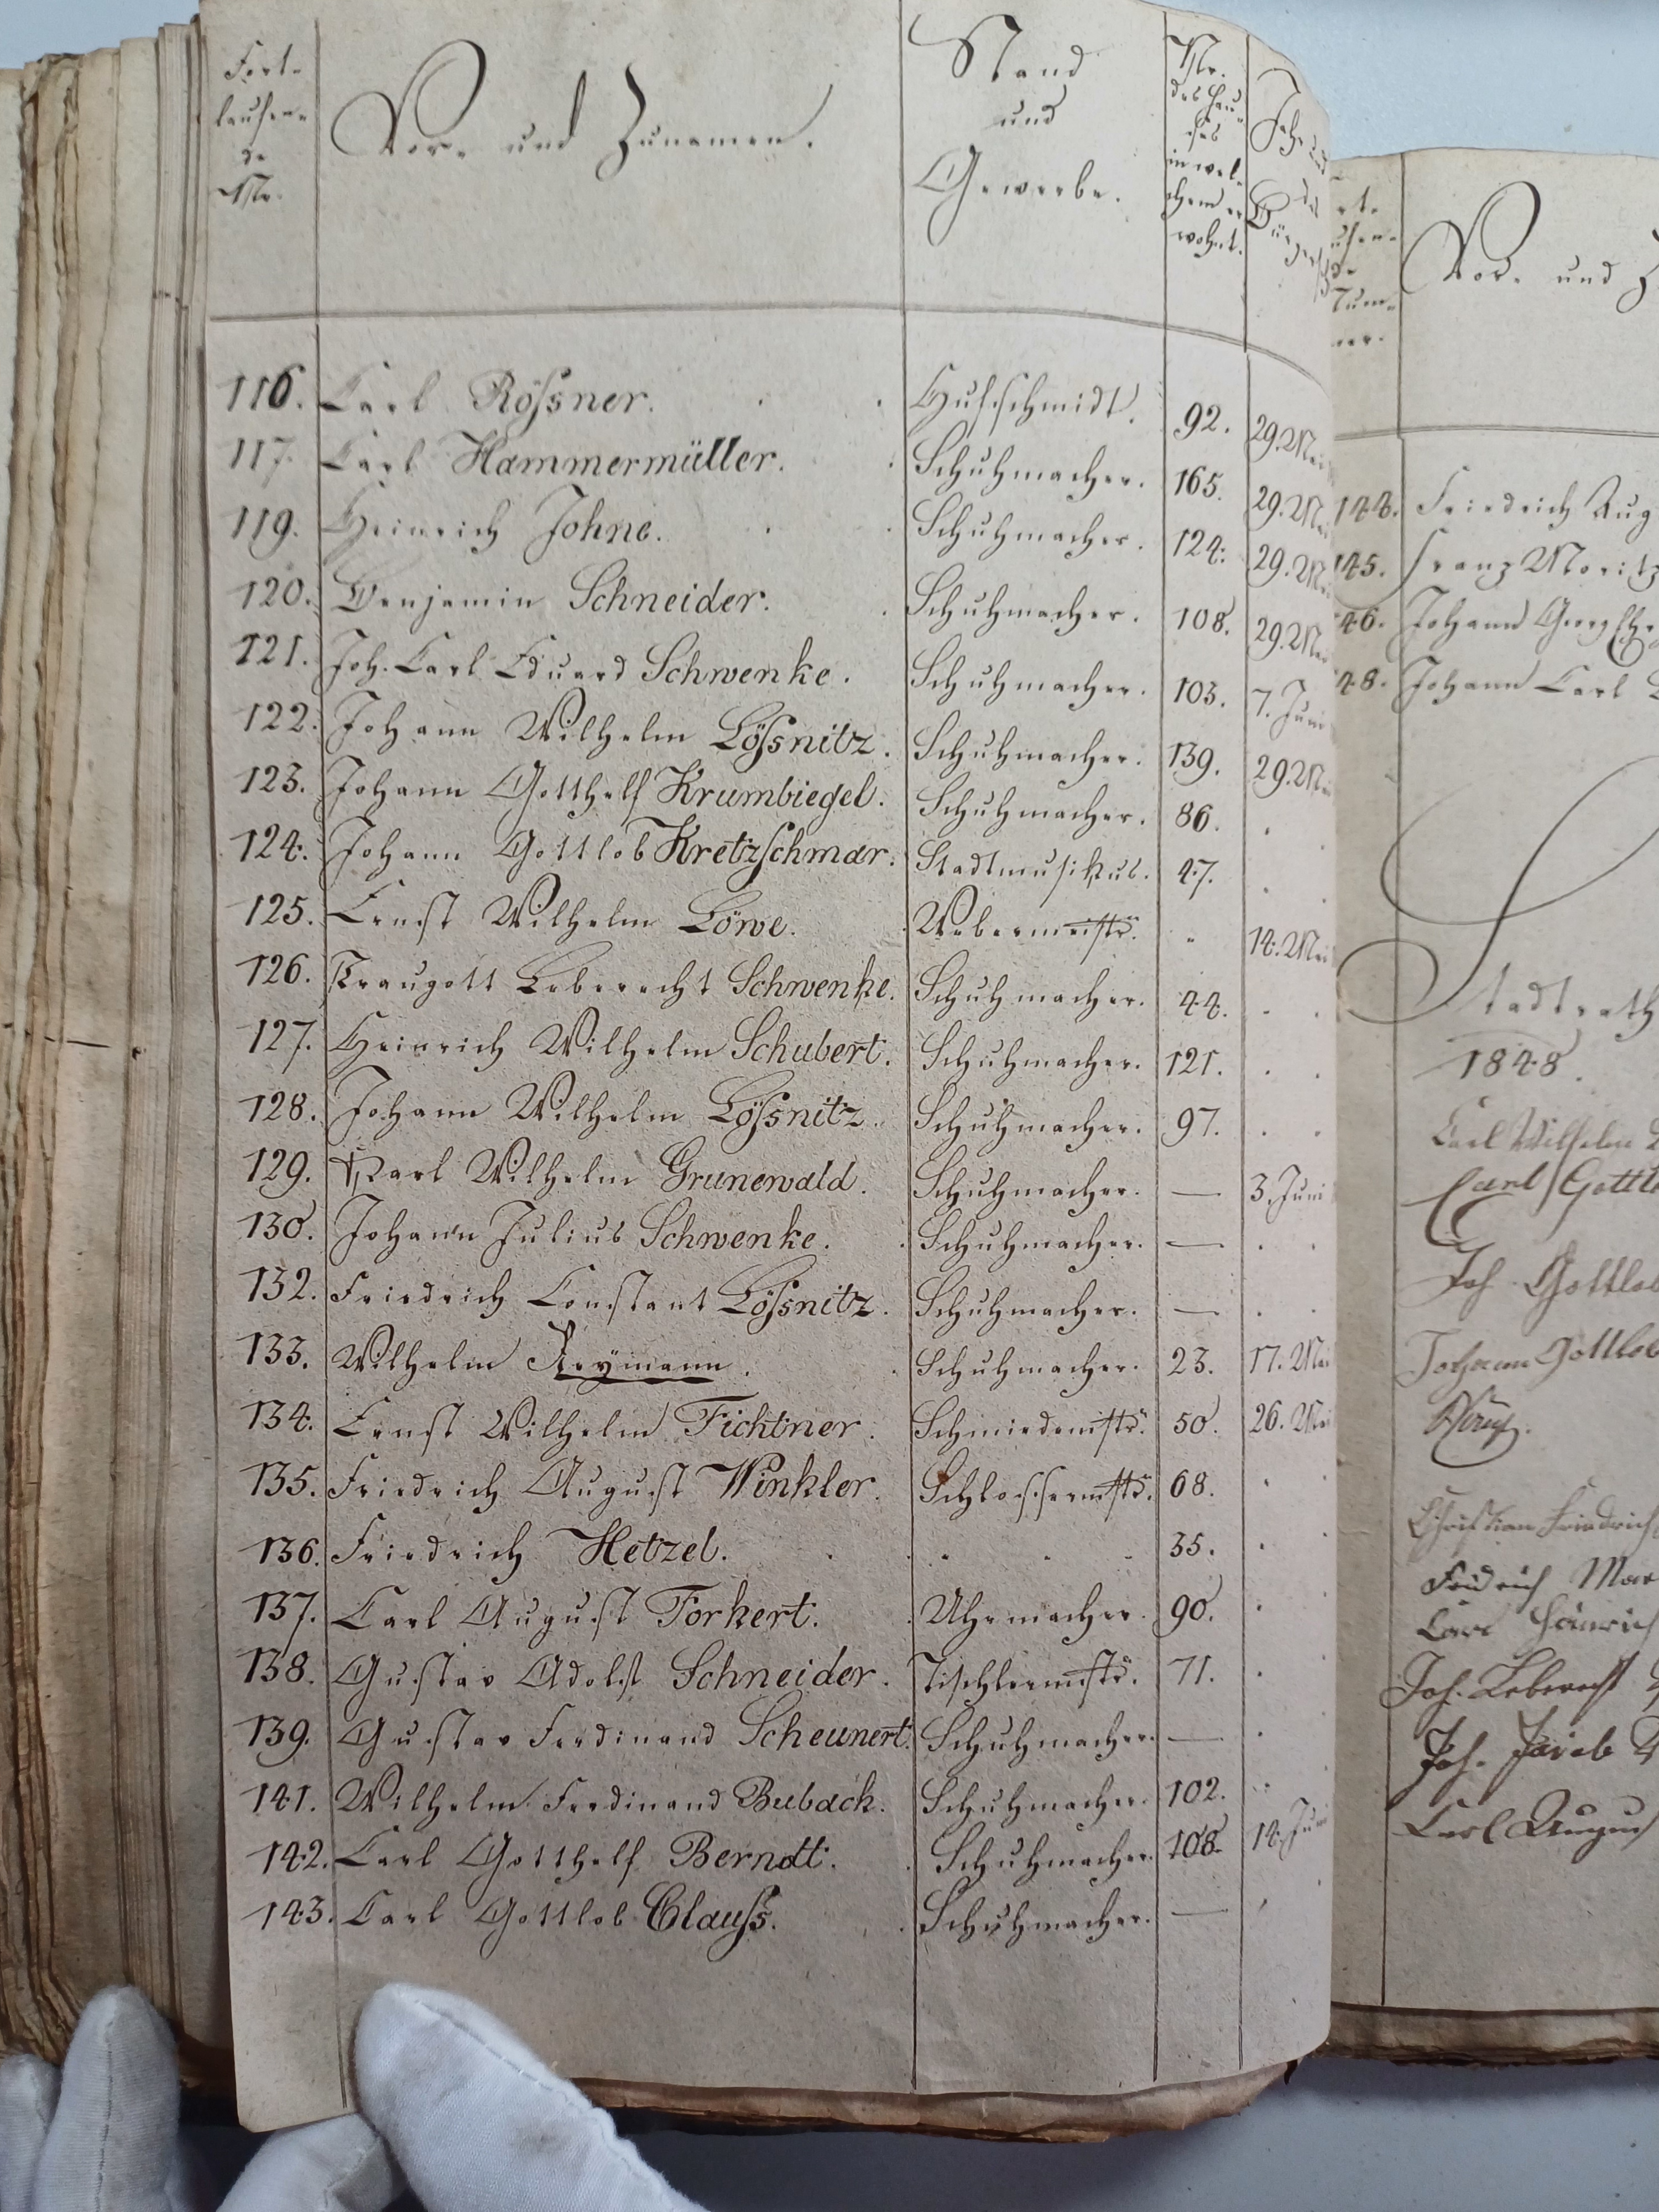 Fort-
laufen-
de
Nr.
Vor- und Zunamen.
Stand
und
Gewerbe.
Nr.
des Hau-
ses
in wel-
chem er
wohnt.
Jahr und
des
Bürger
116. Carl Rößner. Hufschmidt. 92. 29. Mai
117. Carl Hammermüller. Schuhmacher. 165. 29. Mai
119. Heinrich Johne. Schuhmacher. 124. 29. M
120. Benjamin Schneider. Schuhmacher. 108. 29. Mai
121. Joh. Carl Eduard Schwenke. Schuhmacher. 103. 7. Juni
122. Johann Wilhelm Lößnitz. Schuhmacher. 139. 29. Mai
123. Johann Gotthelf Krumbiegel. Schuhmacher. 86.
124. Johann Gottlob Kretzschmar. Stadtmusikus. 47.
125. Ernst Wilhelm Löwe. Webermeistr. " 14. Mai
126. Traugott Leberecht Schwenke. Schuhmacher. 44.
127. Heinrich Wilhelm Schubert. Schuhmacher. 121.
128. Johann Wilhelm Lößnitz. Schuhmacher. 97.
129. Karl Wilhelm Grunewald. Schuhmacher. — 3. Juni
130. Johann Julius Schwenke. Schuhmacher. —
132. Friedrich Constant Lößnitz. Schuhmacher. —
133. Wilhelm Reymann. Schuhmacher. 23. 17. Mai
134. Ernst Wilhelm Fichtner. Schmiedemstr. 50. 26. Mai
135. Friedrich August Winkler. Schlossermstr. 68.
136. Friedrich Hetzel. " 35.
137. Carl August Forkert. Uhrmacher. 90.
138. Gustav Adolf Schneider. Tischlermstr. 71.
139. Gustav Ferdinand Scheunert. Schuhmacher. —
141. Wilhelm Ferdinand Buback. Schuhmacher. 102.
142. Carl Gotthelf Berndt. Schuhmacher. 108. 14. Juni
143. Carl Gottlob Clauß. Schuhmacher. —
Vor- und Z
144. Friedrich Aug
145. Franz Moritz
46. Johann Georg
48. Johann Carl
Stadtrath
1848.
Carl Wilhelm
Carl Gottl
Joh. Gottlob
Johann Gottlob
Christian Friedrich
Friedrich Mor
Carl Heinrich
Joh. Leberecht
Joh. Jacob
Carl August